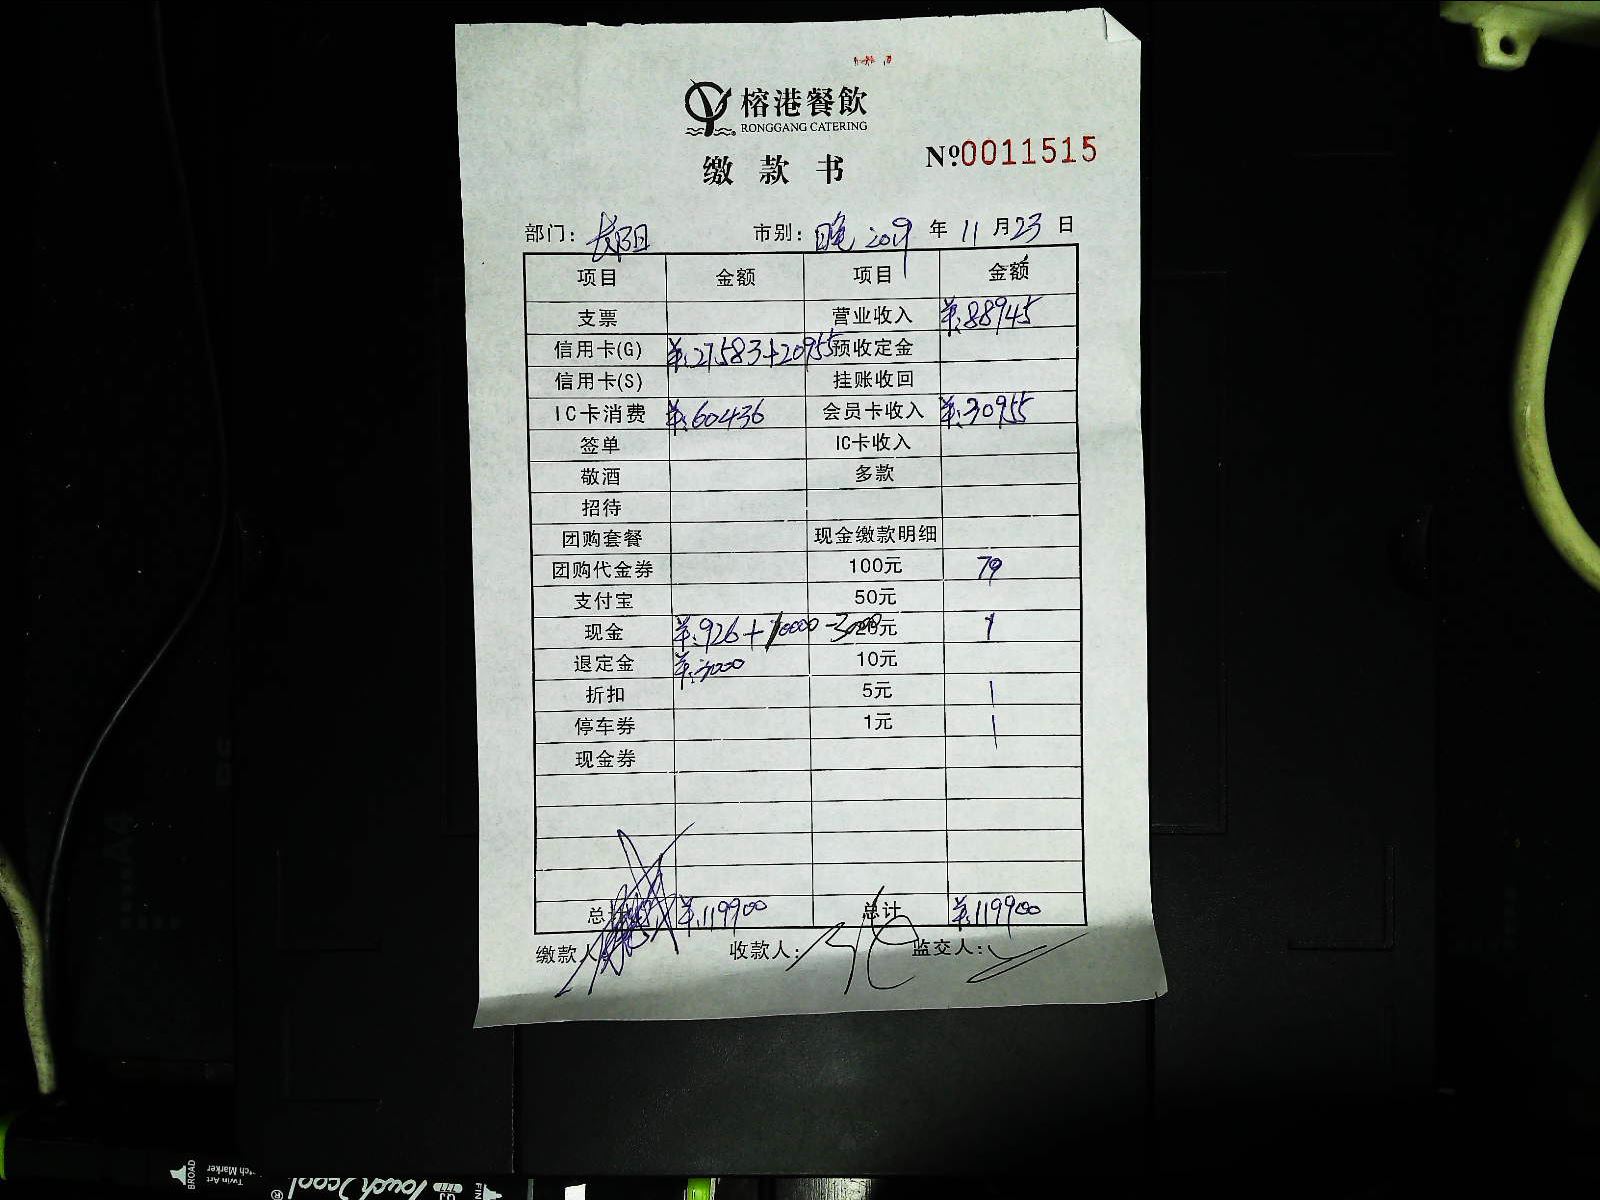 榕港餐飲
RONGGANG CATERING
缴款书 №0011515
部门: 长阳 市别: 晚 2019 年 11 月 23 日
项目 金额 项目 金额
支票 营业收入 ¥:88945
信用卡(G) ¥:27583+20955 预收定金
信用卡(S) 挂账收回
IC卡消费 ¥:60436 会员卡收入 ¥:30955
签单 IC卡收入
敬酒 多款
招待
团购套餐 现金缴款明细
团购代金券 100元 79
支付宝 50元
现金 ¥:926+10000-3000 20元 1
退定金 ¥:3000 10元
折扣 5元 1
停车券 1元 1
现金券
总计 ¥:119900 总计 ¥:119900
缴款人: 收款人: 监交人:
BROAD
Twin Art
Touch Marker
Touch cool